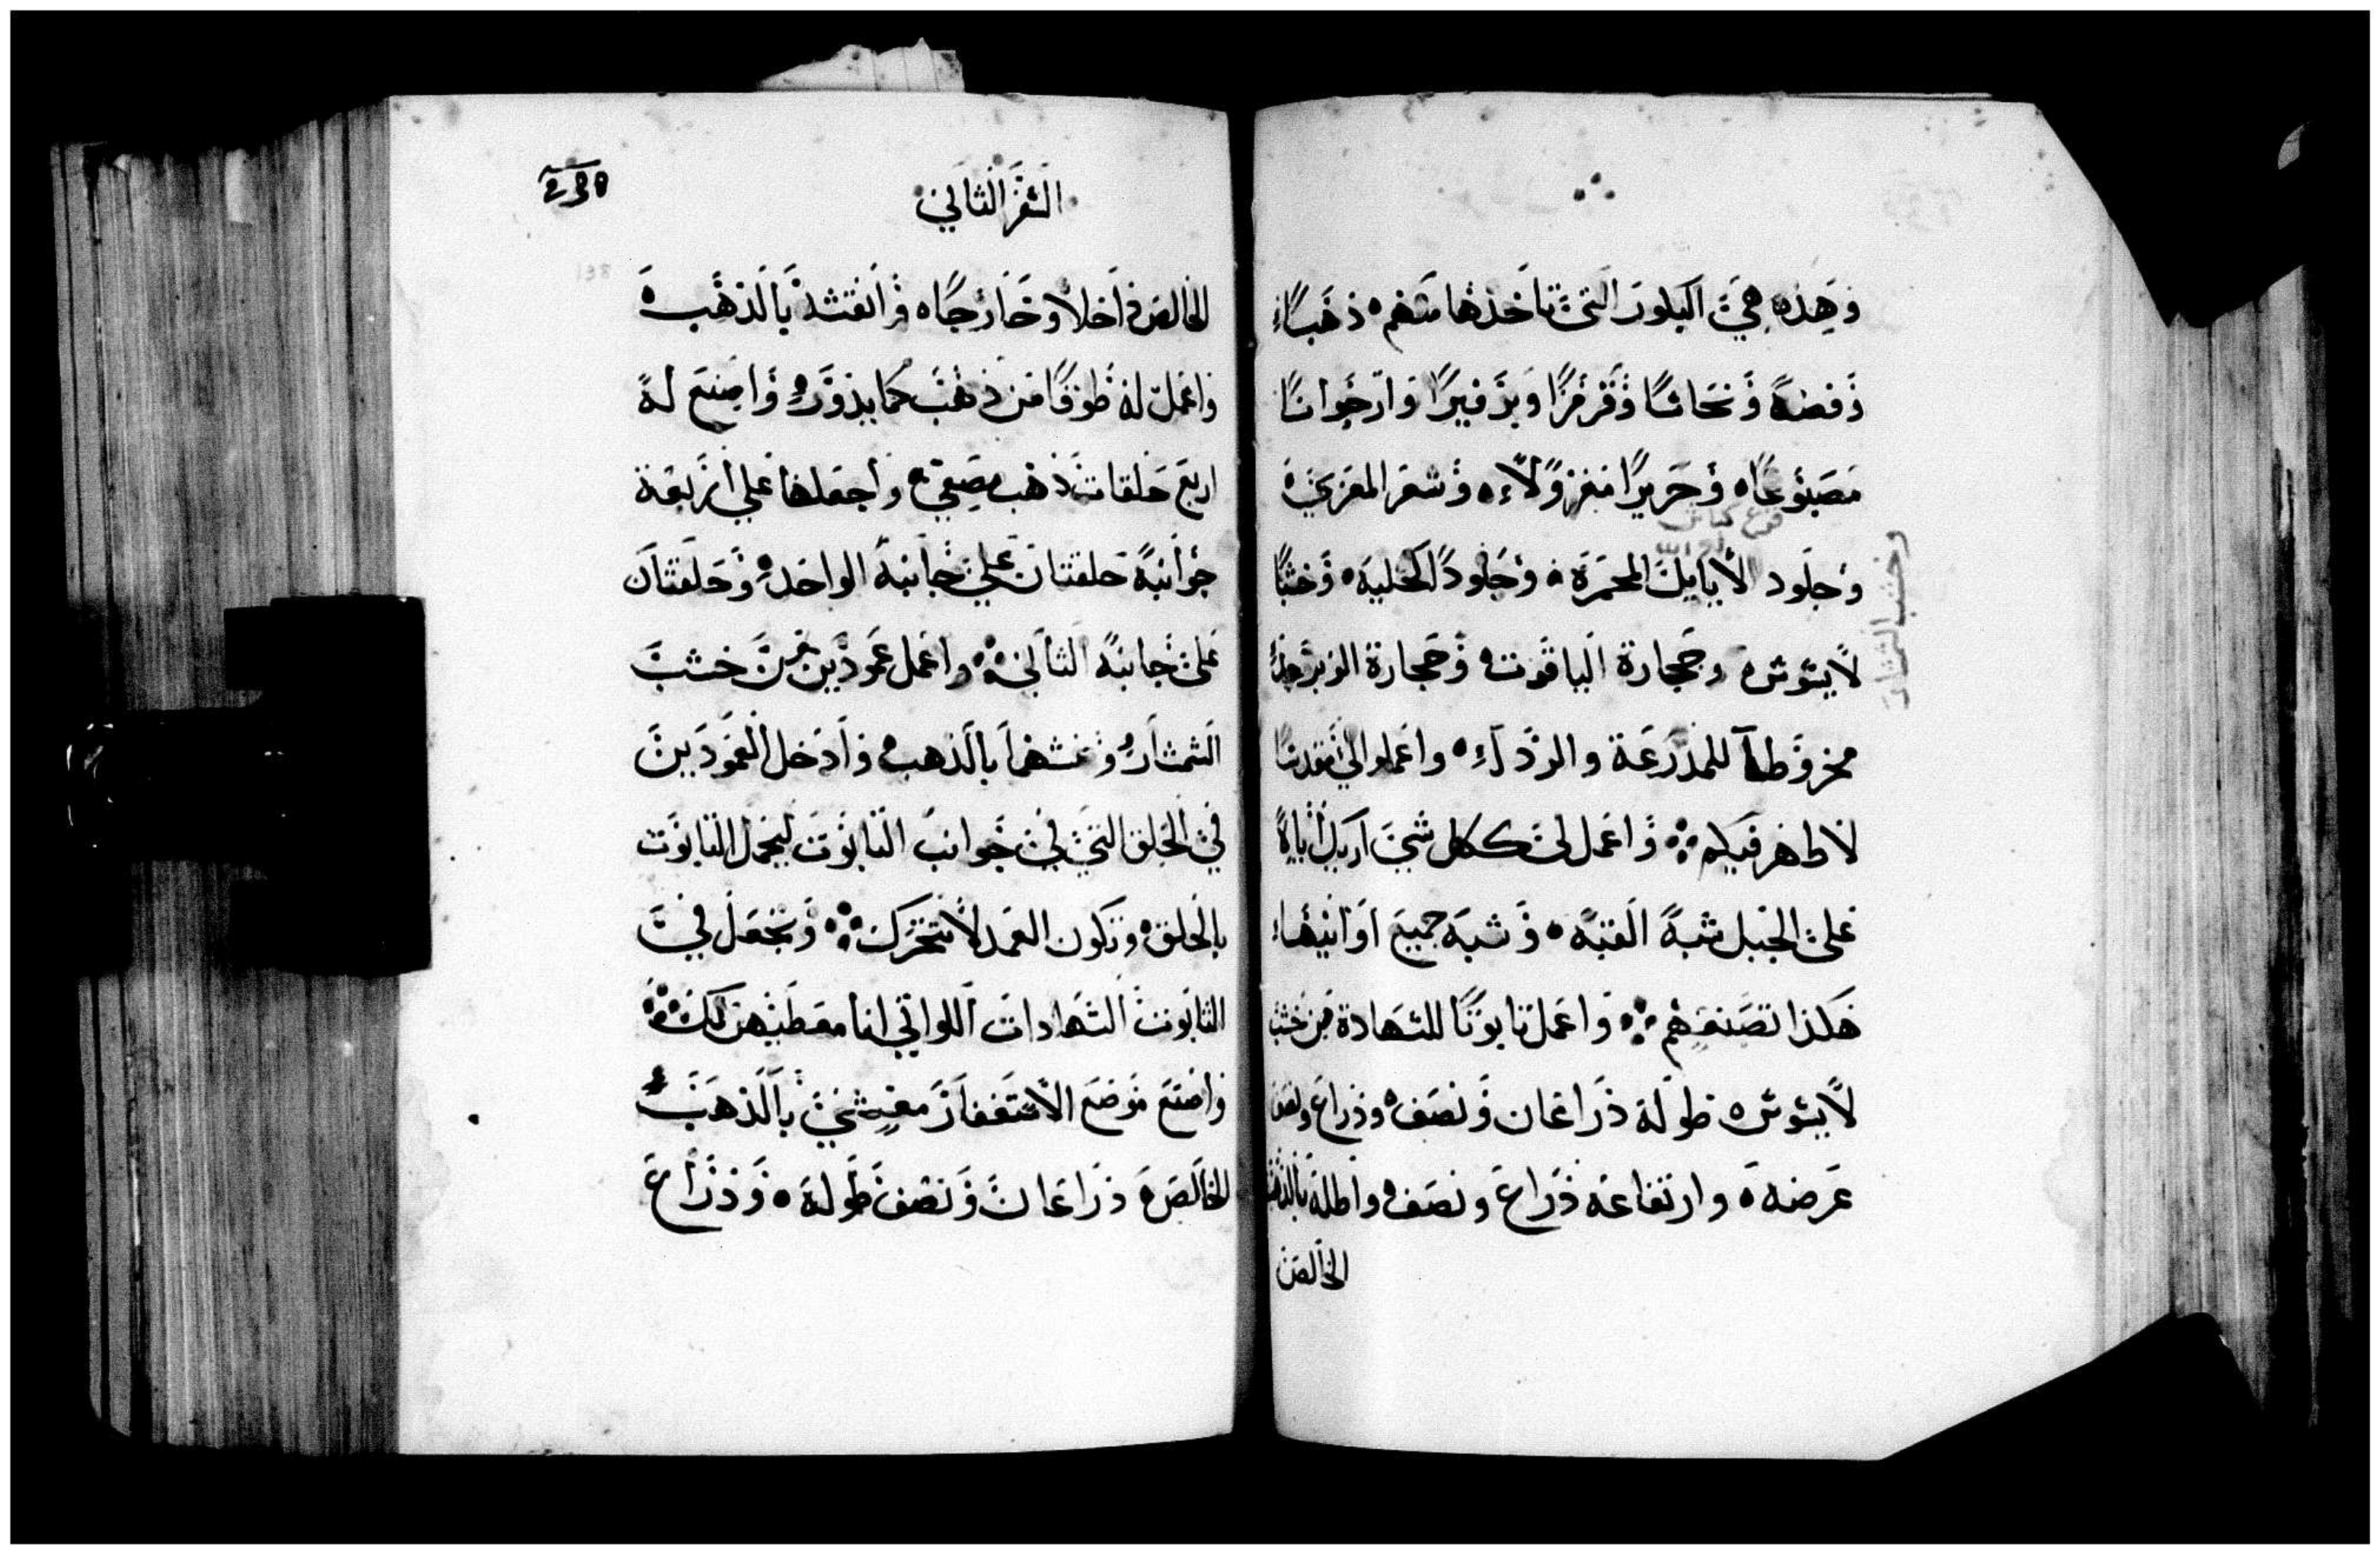 وهذه هي البلور التي تاخذها منهم ذهبًا
وفضة ونحاسًا وقرمزًا وبرفيرًا وارجوانًا
مصبوغًا وحريرًا مغزولًا وشعر المعزي
وجلود الأيايل المحمرة وجلودًا كحلية وخشبًا
لايسوس وحجارة الياقوت وحجارة الزبرجد
مخروطا للمدرعة والرداء واعملوا لي مقدسًا
لاظهر فيكم واعمل لي ككل شي اريك اياه
علي الجبل شبه القبه وشبه جميع اوانيها
هكذا تصنعهم واعمل تابوتًا للشهادة من خشب
لايسوس طوله ذراعان ونصف وذراع ونصف
عرضه وارتفاعه ذراع ونصف واطله بالذهب
الخالص
وخشب الشمشار
السفر الثاني
الخالص داخلًا وخارجًا وانقشه بالذهب
واعمل له طوقًا من ذهب كما يدوره واصنع له
اربع حلقات ذهب مصمتي واجعلها علي اربعة
جوانبه حلقتان علي جانبه الواحد وحلقتان
علي جانبه الثاني واعمل عمودين من خشب
الشمشار وغشهما بالذهب وادخل العمودين
في الحلق التي في جوانب التابوت ليحمل التابوت
بالحلق وتكون العمد لا تتحرك وتجعل في
التابوت الشهادات اللواتي انا معطيهن لك
واصنع موضع الاستغفار مغشي بالذهب
الخالص ذراعان ونصف طوله وذراع